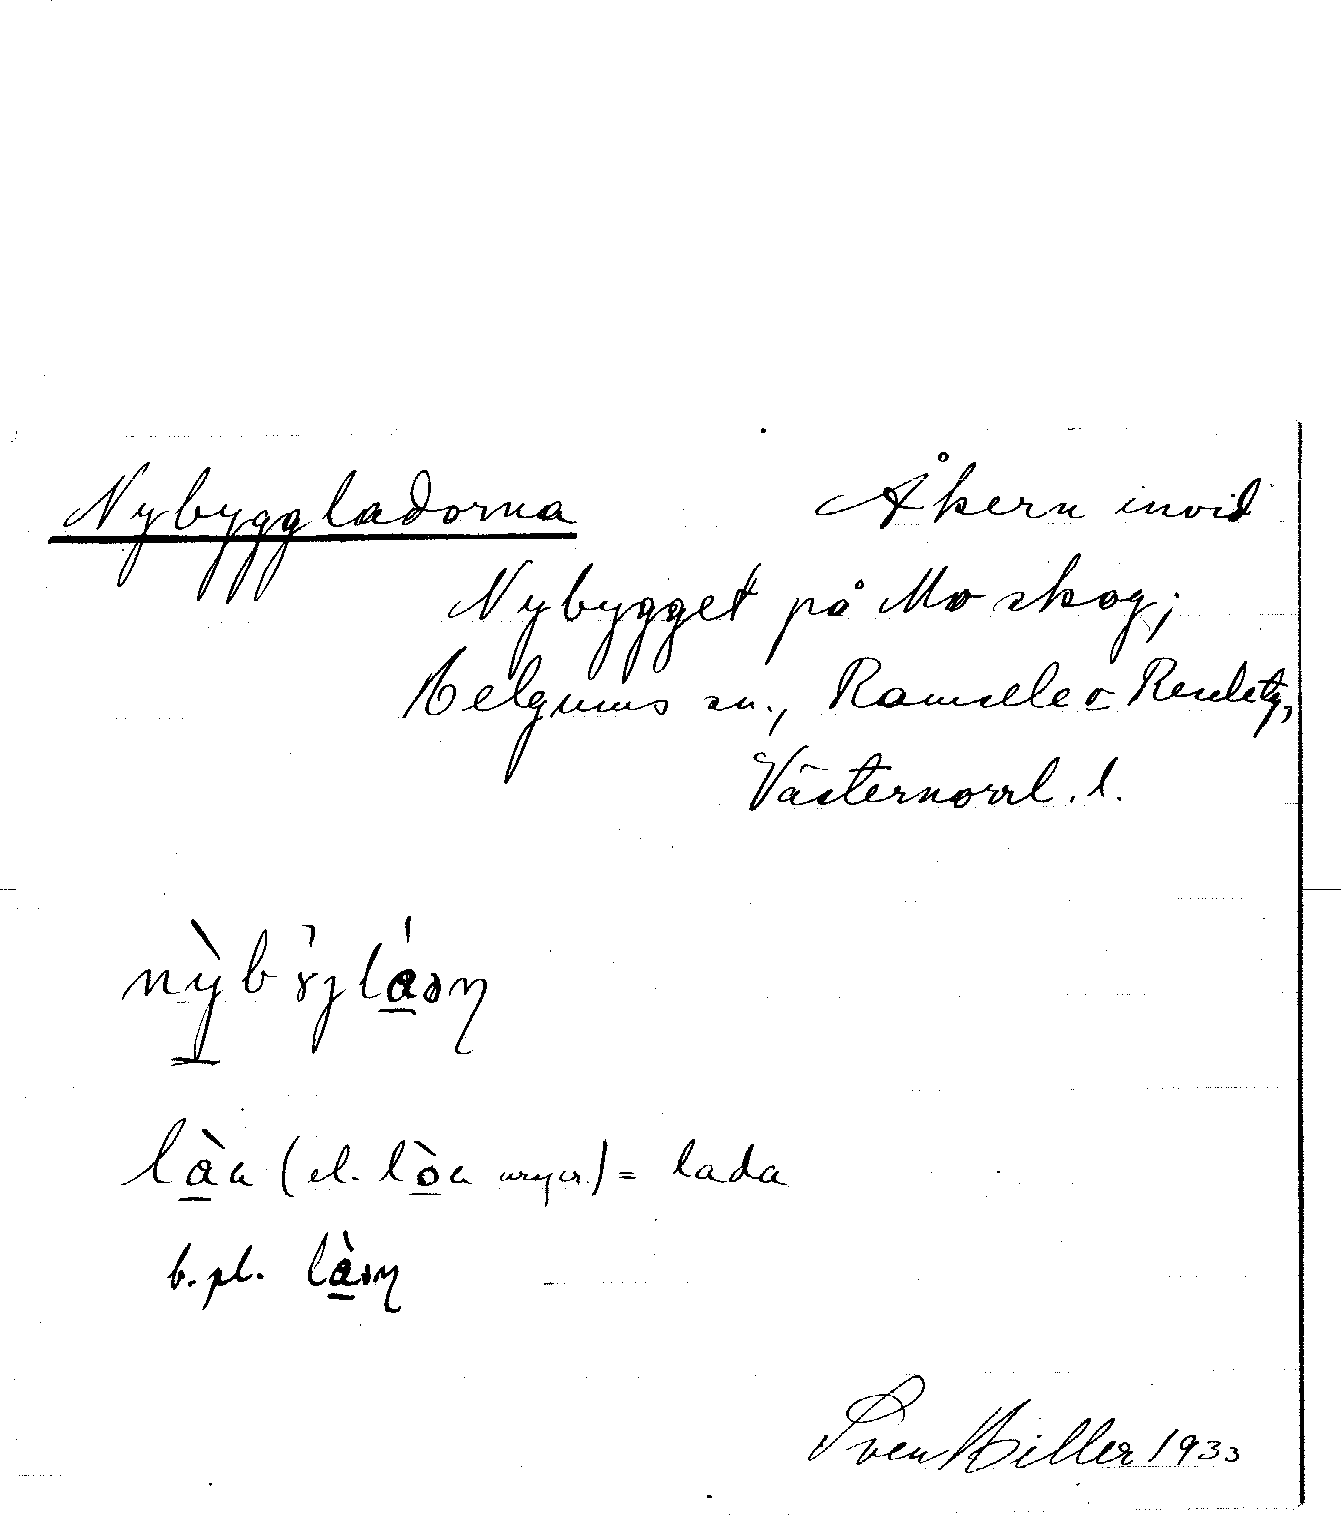 Nybyggladorna Åkern invid
Nybygget på Mo skog;
Helgums sn., Ramsele o Resele tg,
Västernorrl. l.
nỳbʏ́ɟlá̱əɳ
là̱a (el. lò̱a yngr.) = lada
b. pl. là̱əɳ
Sven Hiller 1933